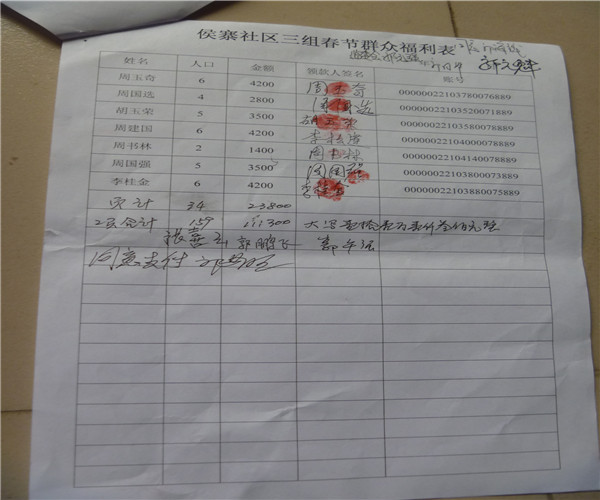 侯寨社区三组春节群众福利表
姓名 人口 金额 领款人签名 账号
周玉奇 6 4200 周玉奇 00000022103780076889
周国选 4 2800 00000022103520071889
胡玉荣 5 3500 胡玉荣 00000022103580078889
周建国 6 4200 李桂唐 00000022104000078889
周书林 2 1400 周书林 00000022104140078889
周国强 5 3500 周国强 00000022103800073889
李桂金 6 4200 李桂金 00000022103880075889
页计 34 23800
2页合计 159 111300 大写 元整
郭鹏飞
同意支付